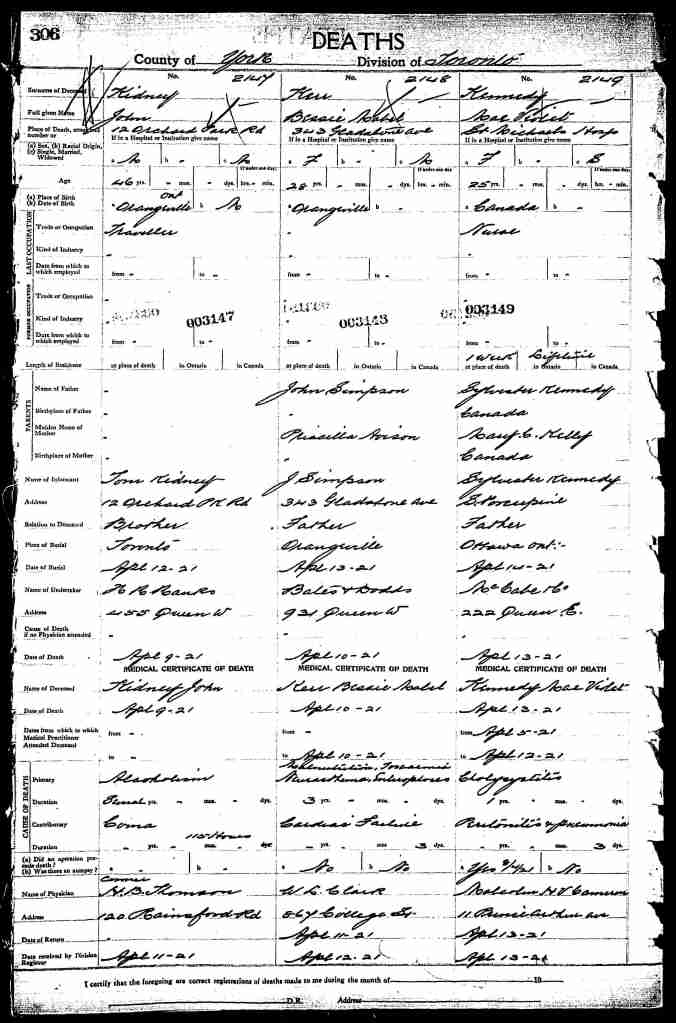 306
DEATHS
County of York Division of Toronto
No. 2147 No. 2148 No. 2149
Surname of Deceased Kidney Kerr Kennedy
Full given Name John Bessie Mabel Mae Violet
Place of Death, number or 12 Orchard Park Rd 343 Gladstone Ave St Michaels Hosp
If in a Hospital or Institution give name If in a Hospital or Institution give name If in a Hospital or Institution give name
(a) Sex, (b) Racial Origin, (c) Single, Married, Widowed M b - M F b - M F b - S
If under one day If under one day If under one day
Age 46 yrs. - mos. - dys. hrs. - min. 28 yrs. - mos. - dys. hrs. - min. 25 yrs. - mos. - dys. hrs. - min.
Ont
(a) Place of Birth (b) Date of Birth Orangeville b Orangeville b - Canada b -
LAST OCCUPATION
Trade or Occupation Traveller - Nurse
Kind of Industry - - -
Date from which to which employed from - to - from - to - from - to -
Trade or Occupation - - -
Kind of Industry 003147 003149
Date from which to which employed from - to - from - to - from - to -
1 Week Lifetime
Length of Residence at place of death in Ontario in Canada at place of death in Ontario in Canada at place of death in Ontario in Canada
PARENTS
Name of Father - John Simpson Sylvester Kennedy
Birthplace of Father - - Canada
Maiden Name of Mother - Priscilla Mary C. Kelly
Birthplace of Mother - - Canada
Name of Informant Tom Kidney J Simpson Sylvester Kennedy
Address 12 Orchard PK Rd 343 Gladstone Ave S. Porcupine
Relation to Deceased Brother Father Father
Place of Burial Toronto Orangeville Ottawa Ont:-
Date of Burial Apl 12-21 Apl 13-21 Apl 14-21
Name of Undertaker Bates & Dodds McCabe & Co
Address 455 Queen W 931 Queen W 222 Queen E.
Cause of Death if no Physician attended - - -
Date of Death Apl 9-21 Apl 10-21 Apl 13-21
MEDICAL CERTIFICATE OF DEATH MEDICAL CERTIFICATE OF DEATH MEDICAL CERTIFICATE OF DEATH
Name of Deceased Kidney John Kerr Bessie Mabel Kennedy Mae Violet
Date of Death Apl 9-21 Apl 10-21 Apl 13-21
Dates from which to which Medical Practitioner Attended Deceased from - from - from Apl 5-21
to - to Apl 10-21 to Apl 12-21
CAUSE OF DEATH
Primary Alcoholism Neurasthenia, Enteroptosis Cholycystitis
Duration yrs. - mos. - dys. 3 yrs. - mos. - dys. 1 yrs. - mos. - dys.
Contributory Coma Cardiac Failure Peritonitis & Pneumonia
11 1/2 Hours
Duration - yrs. - mos. - dys. - yrs. - mos. 3 dys. - yrs. - mos. 3 dys.
(a) Did an operation precede death? (b) Was there an autopsy? - b - No b No Yes b No
Coroner
Name of Physician W. L. Clark Malcolm H V Cameron
Address 120 Rainsford Rd 867 College St.
Date of Return - Apl 11-21 Apl 13-21
Date received by Division Registrar Apl 11-21 Apl 12-21
I certify that the foregoing are correct registrations of deaths made to me during the month of 19
D.R. Address